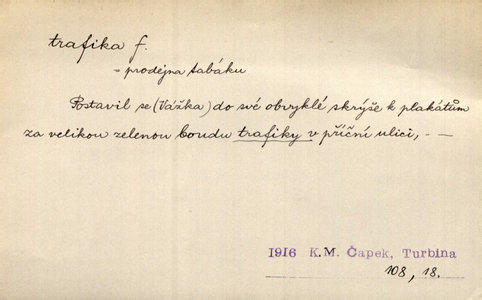 trafika f.
- prodejna tabáku
Postavil se (Vážka) do své obvyklé skrýše k plakátům
za velikou zelenou boudu trafiky v příční ulici, - —
1916 K.M. Čapek, Turbina
108, 18.